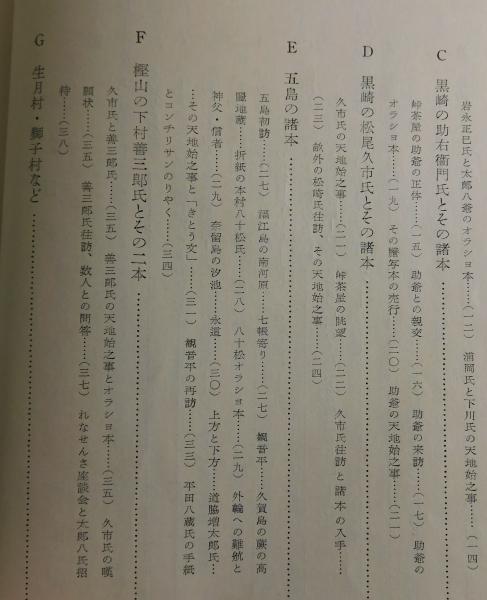 岩永正巳氏と太郎八爺のオラショ本……(一二)　浦岡氏と下川氏の天地始之事……(一四)
C　黒崎の助右衛門氏とその諸本……………
峠茶屋の助爺の正体……(一五)　助爺との親交……(一六)　助爺の来訪……(一七)　助爺の
オラショ本……(一九)　その謄写本の売行……(二〇)　助爺の天地始之事……(二一)
D　黒崎の松尾久市氏とその諸本……………
久市氏の天地始之事……(二一)　峠茶屋の眺望……(二二)　久市氏往訪と諸本の入手……
(二三)　畝外の松崎氏往訪、その天地始之事……(二四)
E　五島の諸本……………
五島初訪……(二七)　福江島の南河原……七帳寄り……(二七)　観音平……久賀島の蕨の高
隠地蔵……折紙の本村八十松氏……(二八)　八十松オラショ本……(二九)　外輪への難航と
神父・信者……(二九)　奈留島の汐池……永道……(三〇)　上方と下方……道脇増太郎氏…
…その天地始之事と「きとう文」……(三一)　観音平の再訪……(三三)　平田八蔵氏の手紙
とコンチリサンのりやく……(三四)
F　樫山の下村善三郎氏とその二本……………
久市氏と善三郎氏……(三五)　善三郎氏の天地始之事とオラショ本……(三五)　久市氏の嘆
願状……(三五)　善三郎氏往訪、数人との問答……(三七)　れなせんさ座談会と太郎八氏招
待……(三八)
G　生月村・獅子村など……………